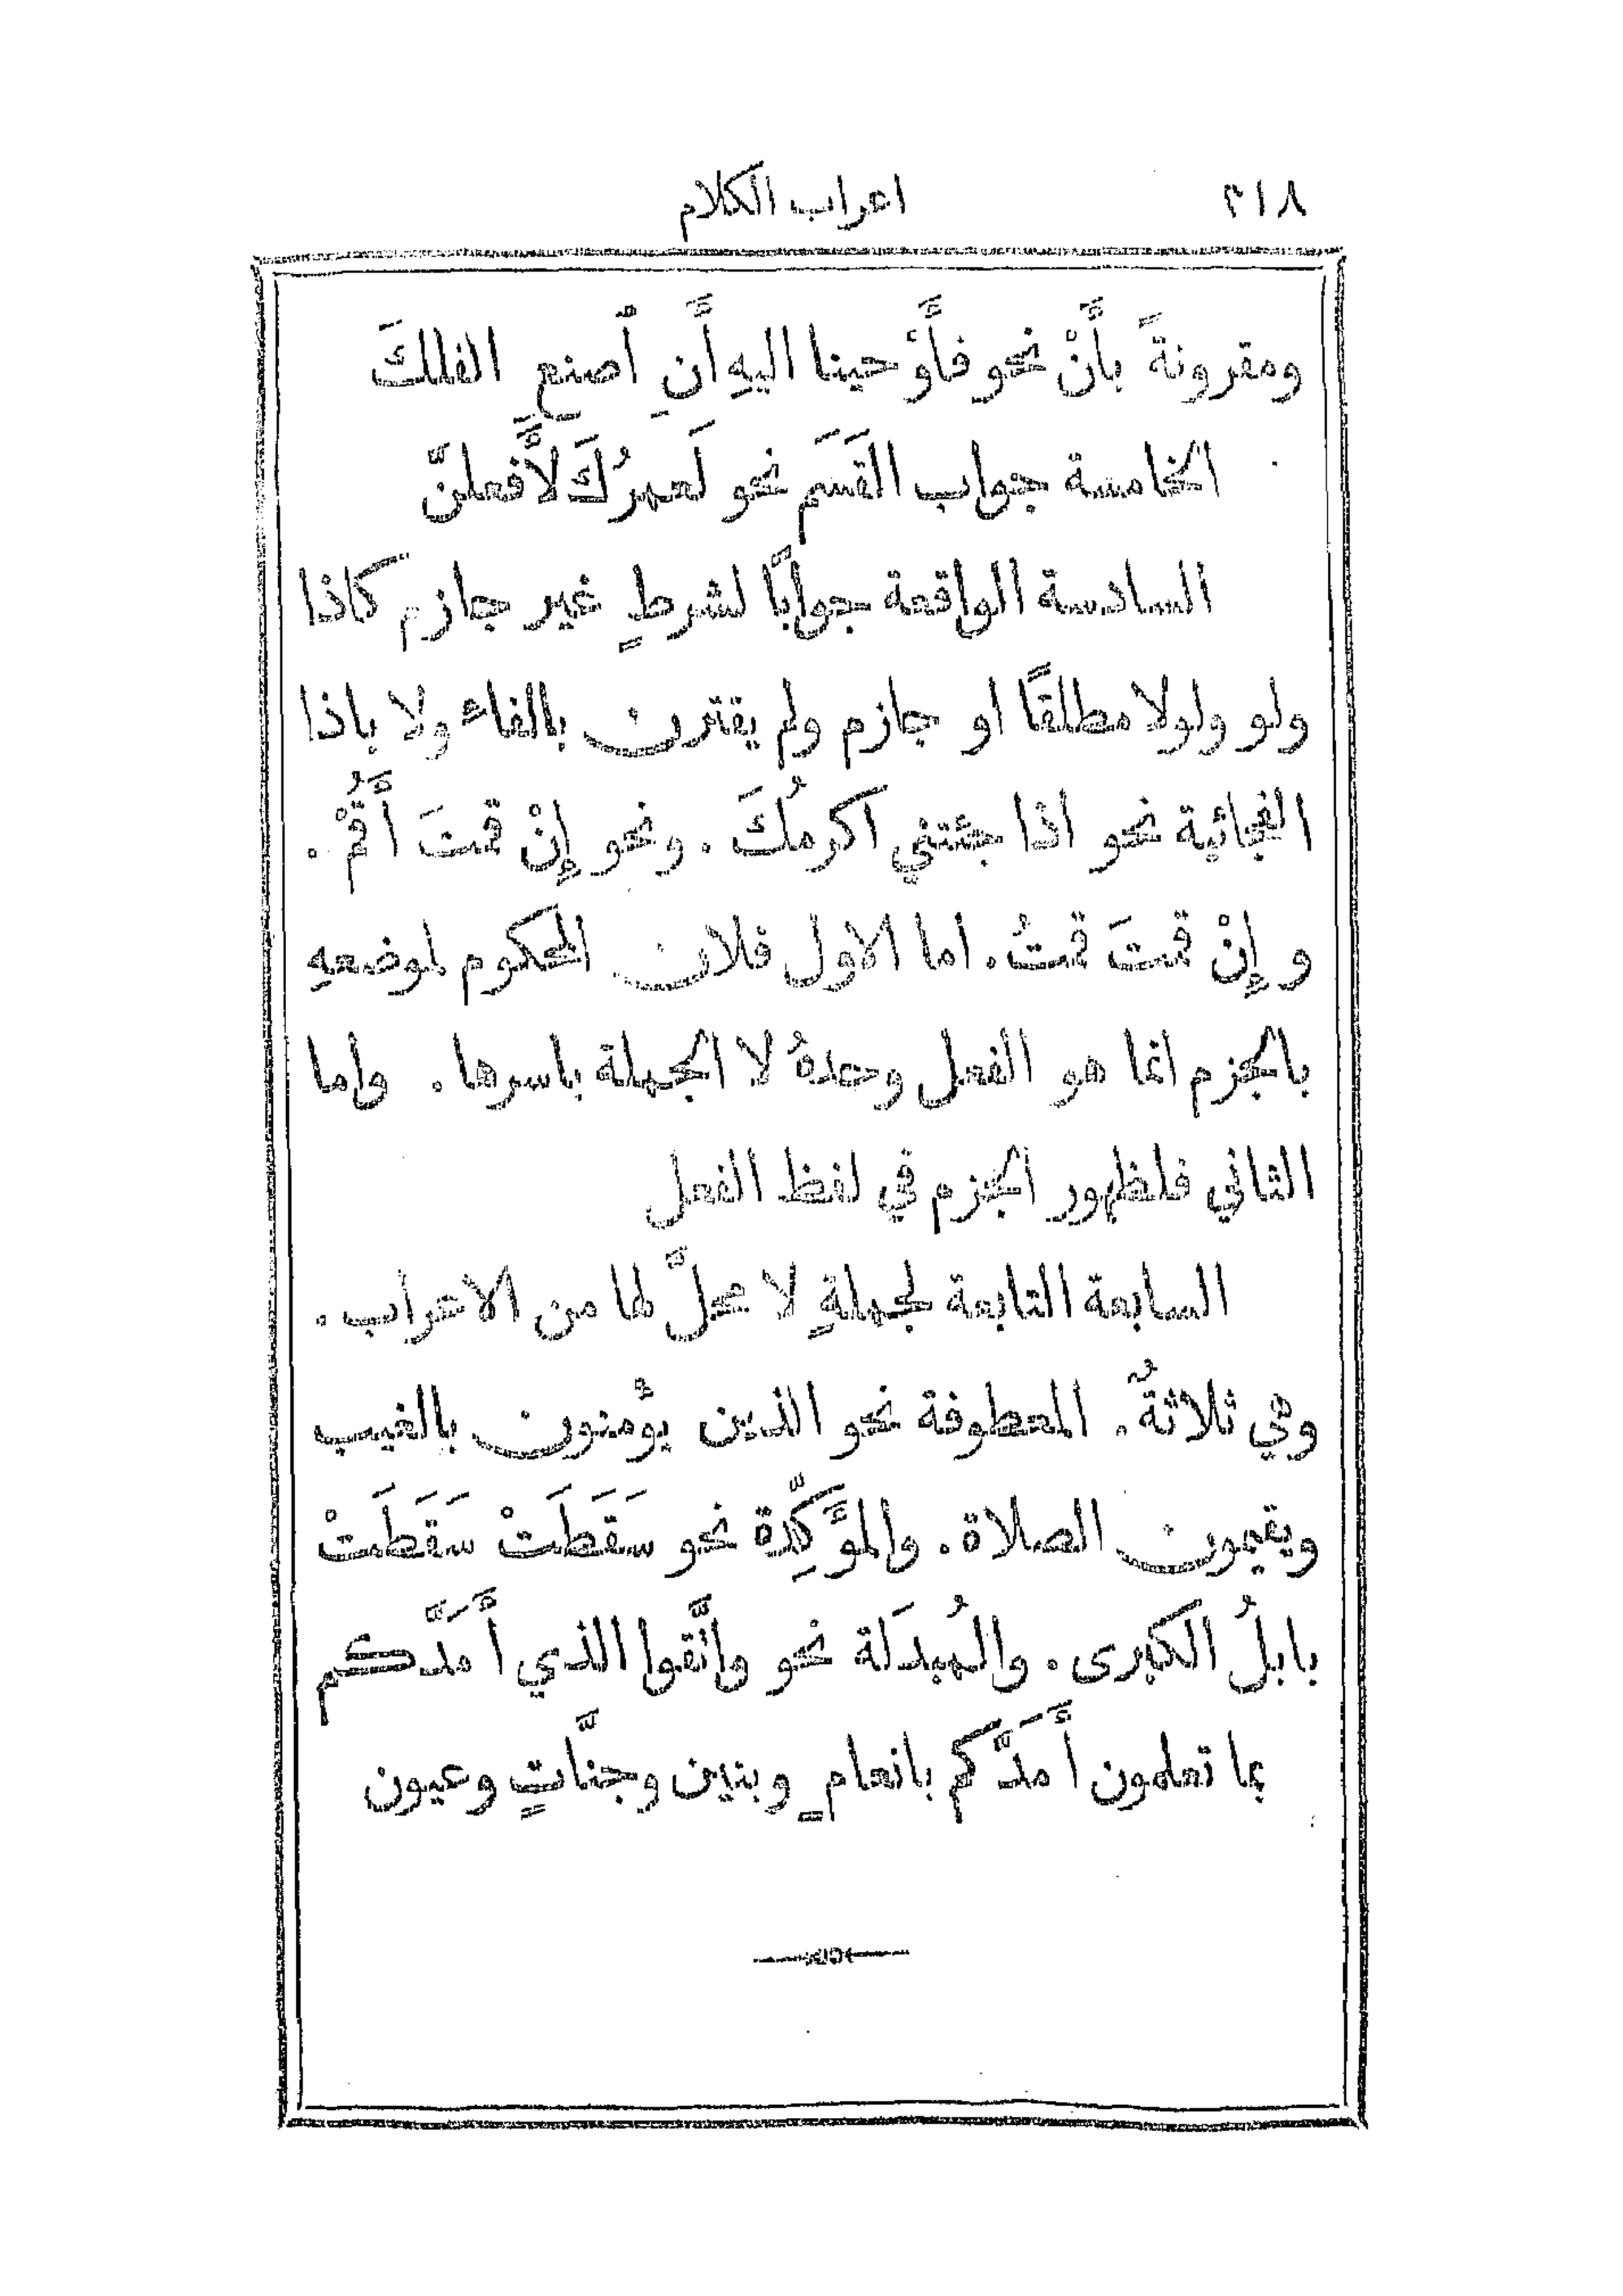 ٢١٨ اعراب الكلام
ومقرونةً بأَنْ نحو فأَوْحينا اليهِ أَنِ أصنعِ الفلكَ
الخامسة جواب القَسَم نحو لَعمرُكَ لأَفعلنّ
السادسة الواقعة جوابًا لشرطٍ غير جازم كاذا
ولو ولولا مطلقًا او جازم ولم يقترن بالفاء ولا باذا
الفجائية نحو اذا جئتني اكرمُكَ. ونحو إِنْ قمتَ أَقُمْ.
و إِنْ قمتَ قمتُ. اما الاول فلان المحكوم لموضعهِ
بالجزم انما هو الفعل وحدهُ لا الجملة باسرها. واما
الثاني فلظهور الجزم في لفظ الفعل
السابعة التابعة لجملةٍ لا محلَّ لها من الاعراب.
وهي ثلاثةٌ. المعطوفة نحو الذين يؤْمنون بالغيب
ويقيمون الصلاة. والمؤَكِّدة نحو سَقَطَتْ سَقَطَتْ
بابلُ الكبرى. والمُبدَلة نحو واتَّقوا الذي أَمَدَّكم
بما تعلمون أَمَدَّكم بانعامٍ وبنين وجنَّاتٍ وعيون